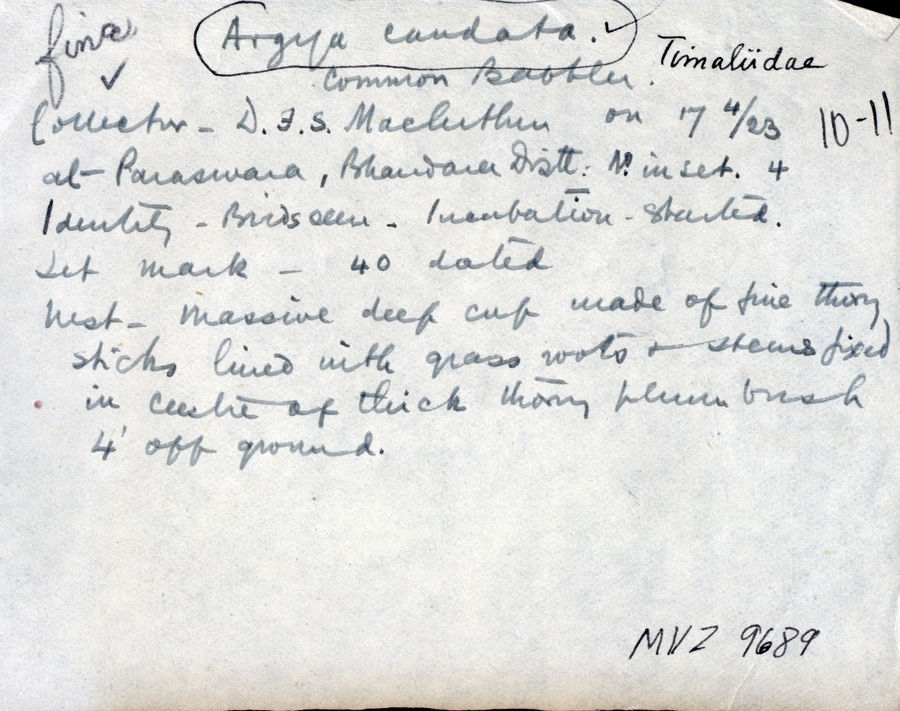 fine ✓
Argya caudata. ✓ Timaliidae
Common Babbler.
Collector - D.F.S. on 17 4/23 10-11
at Paraswara, Bhandara Distt: No in set. 4
Identity - Bird seen. Incubation - Started.
Set mark - 40 dated
Nest - Massive deep cup made of fine thorny
sticks lined with grass roots + stems fixed
in centre of thick thorny plum bush
4' off ground.
MVZ 9689